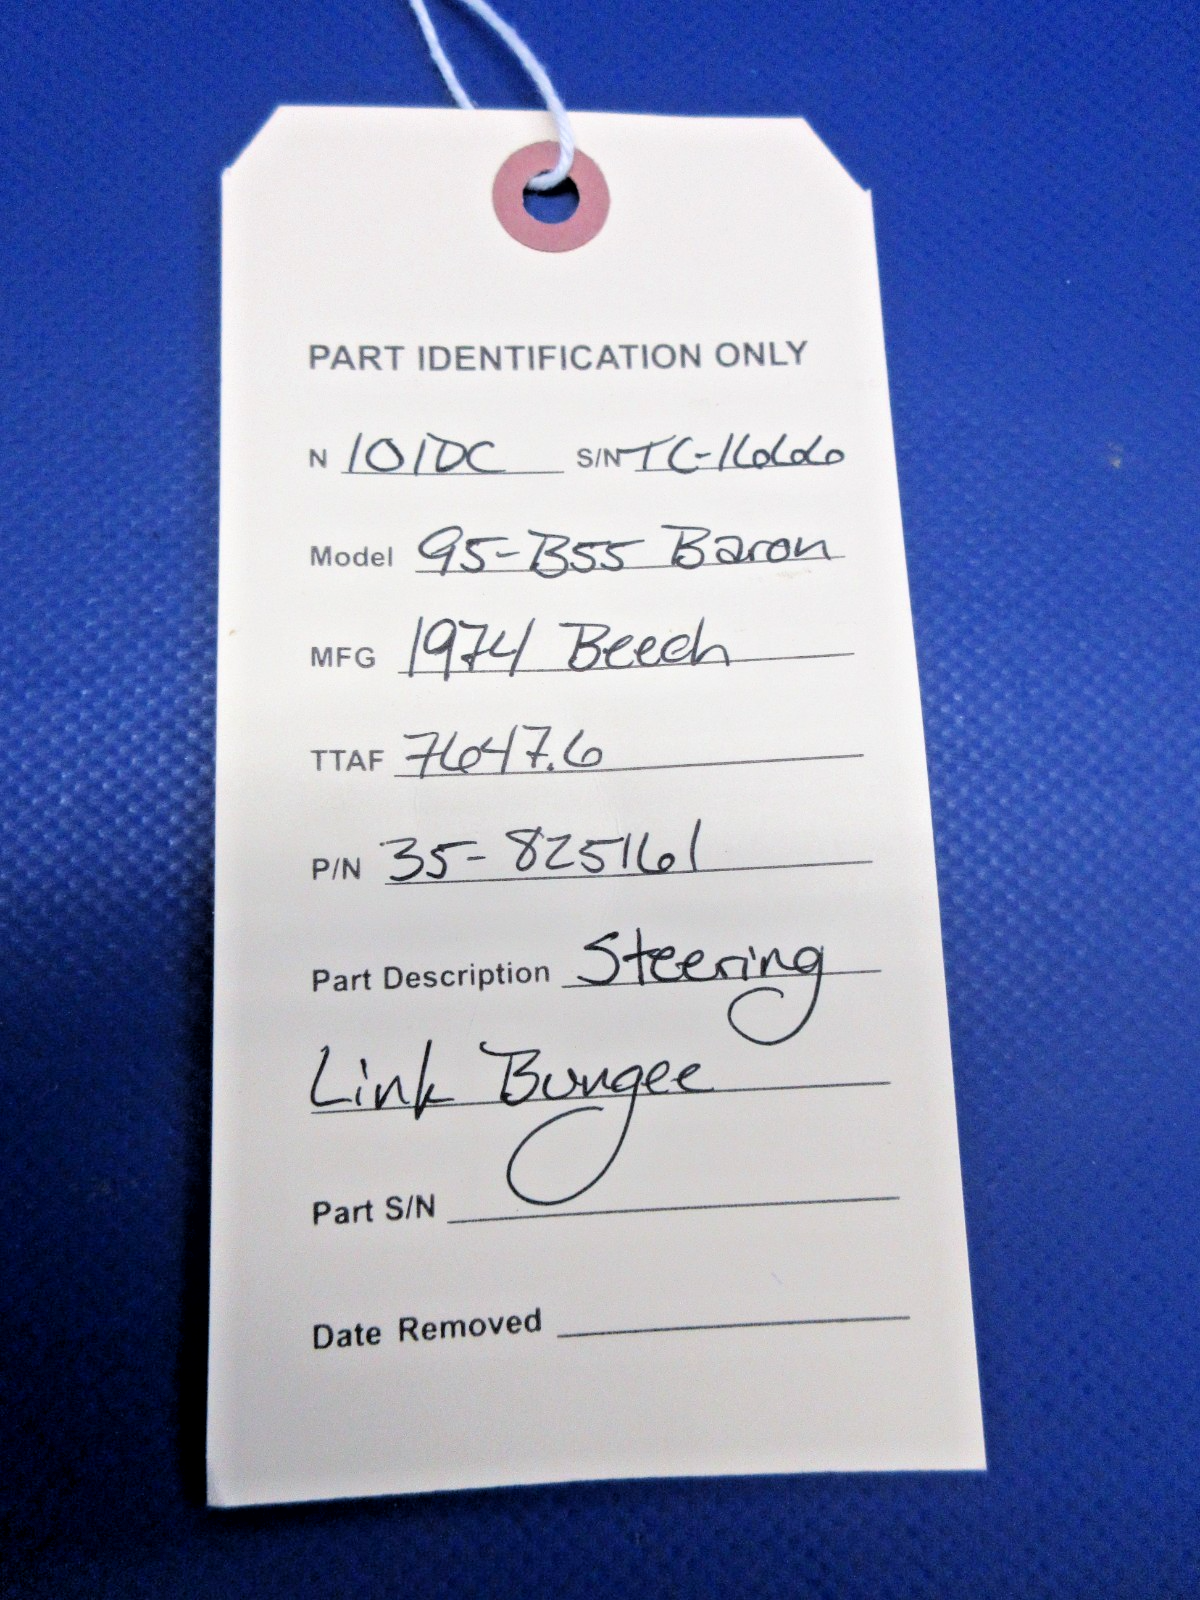 PART IDENTIFICATION ONLY
N 101DC S/N TC-1666
Model 95-B55 Baron
MFG 1974 Beech
TTAF 7647.6
P/N 35-825161
Part Description Steering
Link Bungee
Part S/N
Date Removed